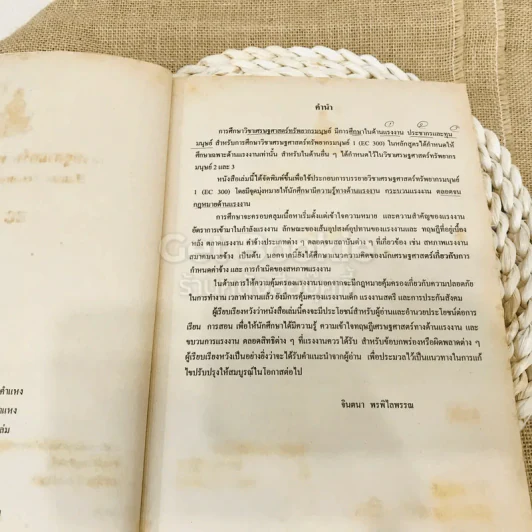 คำนำ
การศึกษาวิชาเศรษฐศาสตร์ทรัพยากรมนุษย์ มีการศึกษาในด้านแรงงาน ประชากรและทุน
มนุษย์ สำหรับการศึกษาวิชาเศรษฐศาสตร์ทรัพยากรมนุษย์ 1 (EC 300) ในหลักสูตรได้กำหนดให้
ศึกษาเฉพาะด้านแรงงานเท่านั้น สำหรับในด้านอื่น ๆ ได้กำหนดไว้ในวิชาเศรษฐศาสตร์ทรัพยากร
มนุษย์ 2 และ 3
หนังสือเล่มนี้ได้จัดพิมพ์ขึ้นเพื่อใช้ประกอบการบรรยายวิชาเศรษฐศาสตร์ทรัพยากรมนุษย์
1 (EC 300) โดยมีจุดมุ่งหมายให้นักศึกษามีความรู้ทางด้านแรงงาน กระบวนแรงงาน ตลอดจน
กฎหมายด้านแรงงาน
การศึกษาจะครอบคลุมเนื้อหาเริ่มตั้งแต่เข้าใจความหมาย และความสำคัญของแรงงาน
อัตราการเข้ามาในกำลังแรงงาน ลักษณะของเส้นอุปสงค์อุปทานของแรงงานและ ทฤษฎีที่อยู่เบื้อง
หลัง ตลาดแรงงาน ค่าจ้างประเภทต่าง ๆ ตลอดจนสถาบันต่าง ๆ ที่เกี่ยวข้อง เช่น สหภาพแรงงาน
สมาคมนายจ้าง เป็นต้น นอกจากนี้ยังได้ศึกษาแนวความคิดของนักเศรษฐศาสตร์เกี่ยวกับการ
กำหนดค่าจ้าง และ การกำเนิดของสหภาพแรงงาน
ในด้านการให้ความคุ้มครองแรงงานนอกจากจะมีกฎหมายคุ้มครองเกี่ยวกับความปลอดภัย
ในการทำงาน เวลาทำงานแล้ว ยังมีการคุ้มครองแรงงานเด็ก แรงงานสตรี และการประกันสังคม
ผู้เรียบเรียงหวังว่าหนังสือเล่มนี้คงจะมีประโยชน์สำหรับผู้อ่านและอำนวยประโยชน์ต่อการ
เรียน การสอน เพื่อให้นักศึกษาได้มีความรู้ ความเข้าใจทฤษฎีเศรษฐศาสตร์ทางด้านแรงงาน และ
ขบวนการแรงงาน ตลอดสิทธิต่าง ๆ ที่แรงงานควรได้รับ สำหรับข้อบกพร่องหรือผิดพลาดต่าง ๆ
ผู้เรียบเรียงหวังเป็นอย่างยิ่งว่าจะได้รับคำแนะนำจากผู้อ่าน เพื่อประมวลไว้เป็นแนวทางในการแก้
ไขปรับปรุงให้สมบูรณ์ในโอกาสต่อไป
จินตนา พรพิไลพรรณ